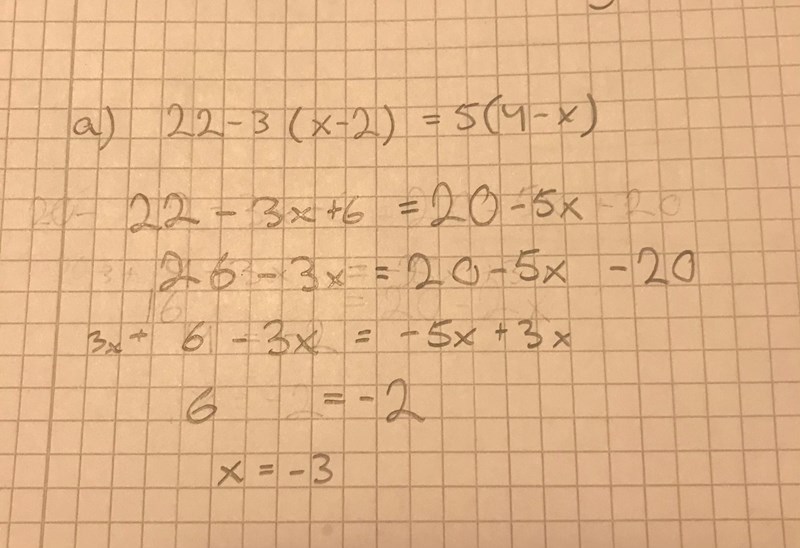 a) 22-3 (x-2) = 5(4-x)
22 - 3x+6 = 20-5x
26 - 3x = 20-5x -20
3x + 6 - 3x = -5x + 3x
6 = -2
x = -3